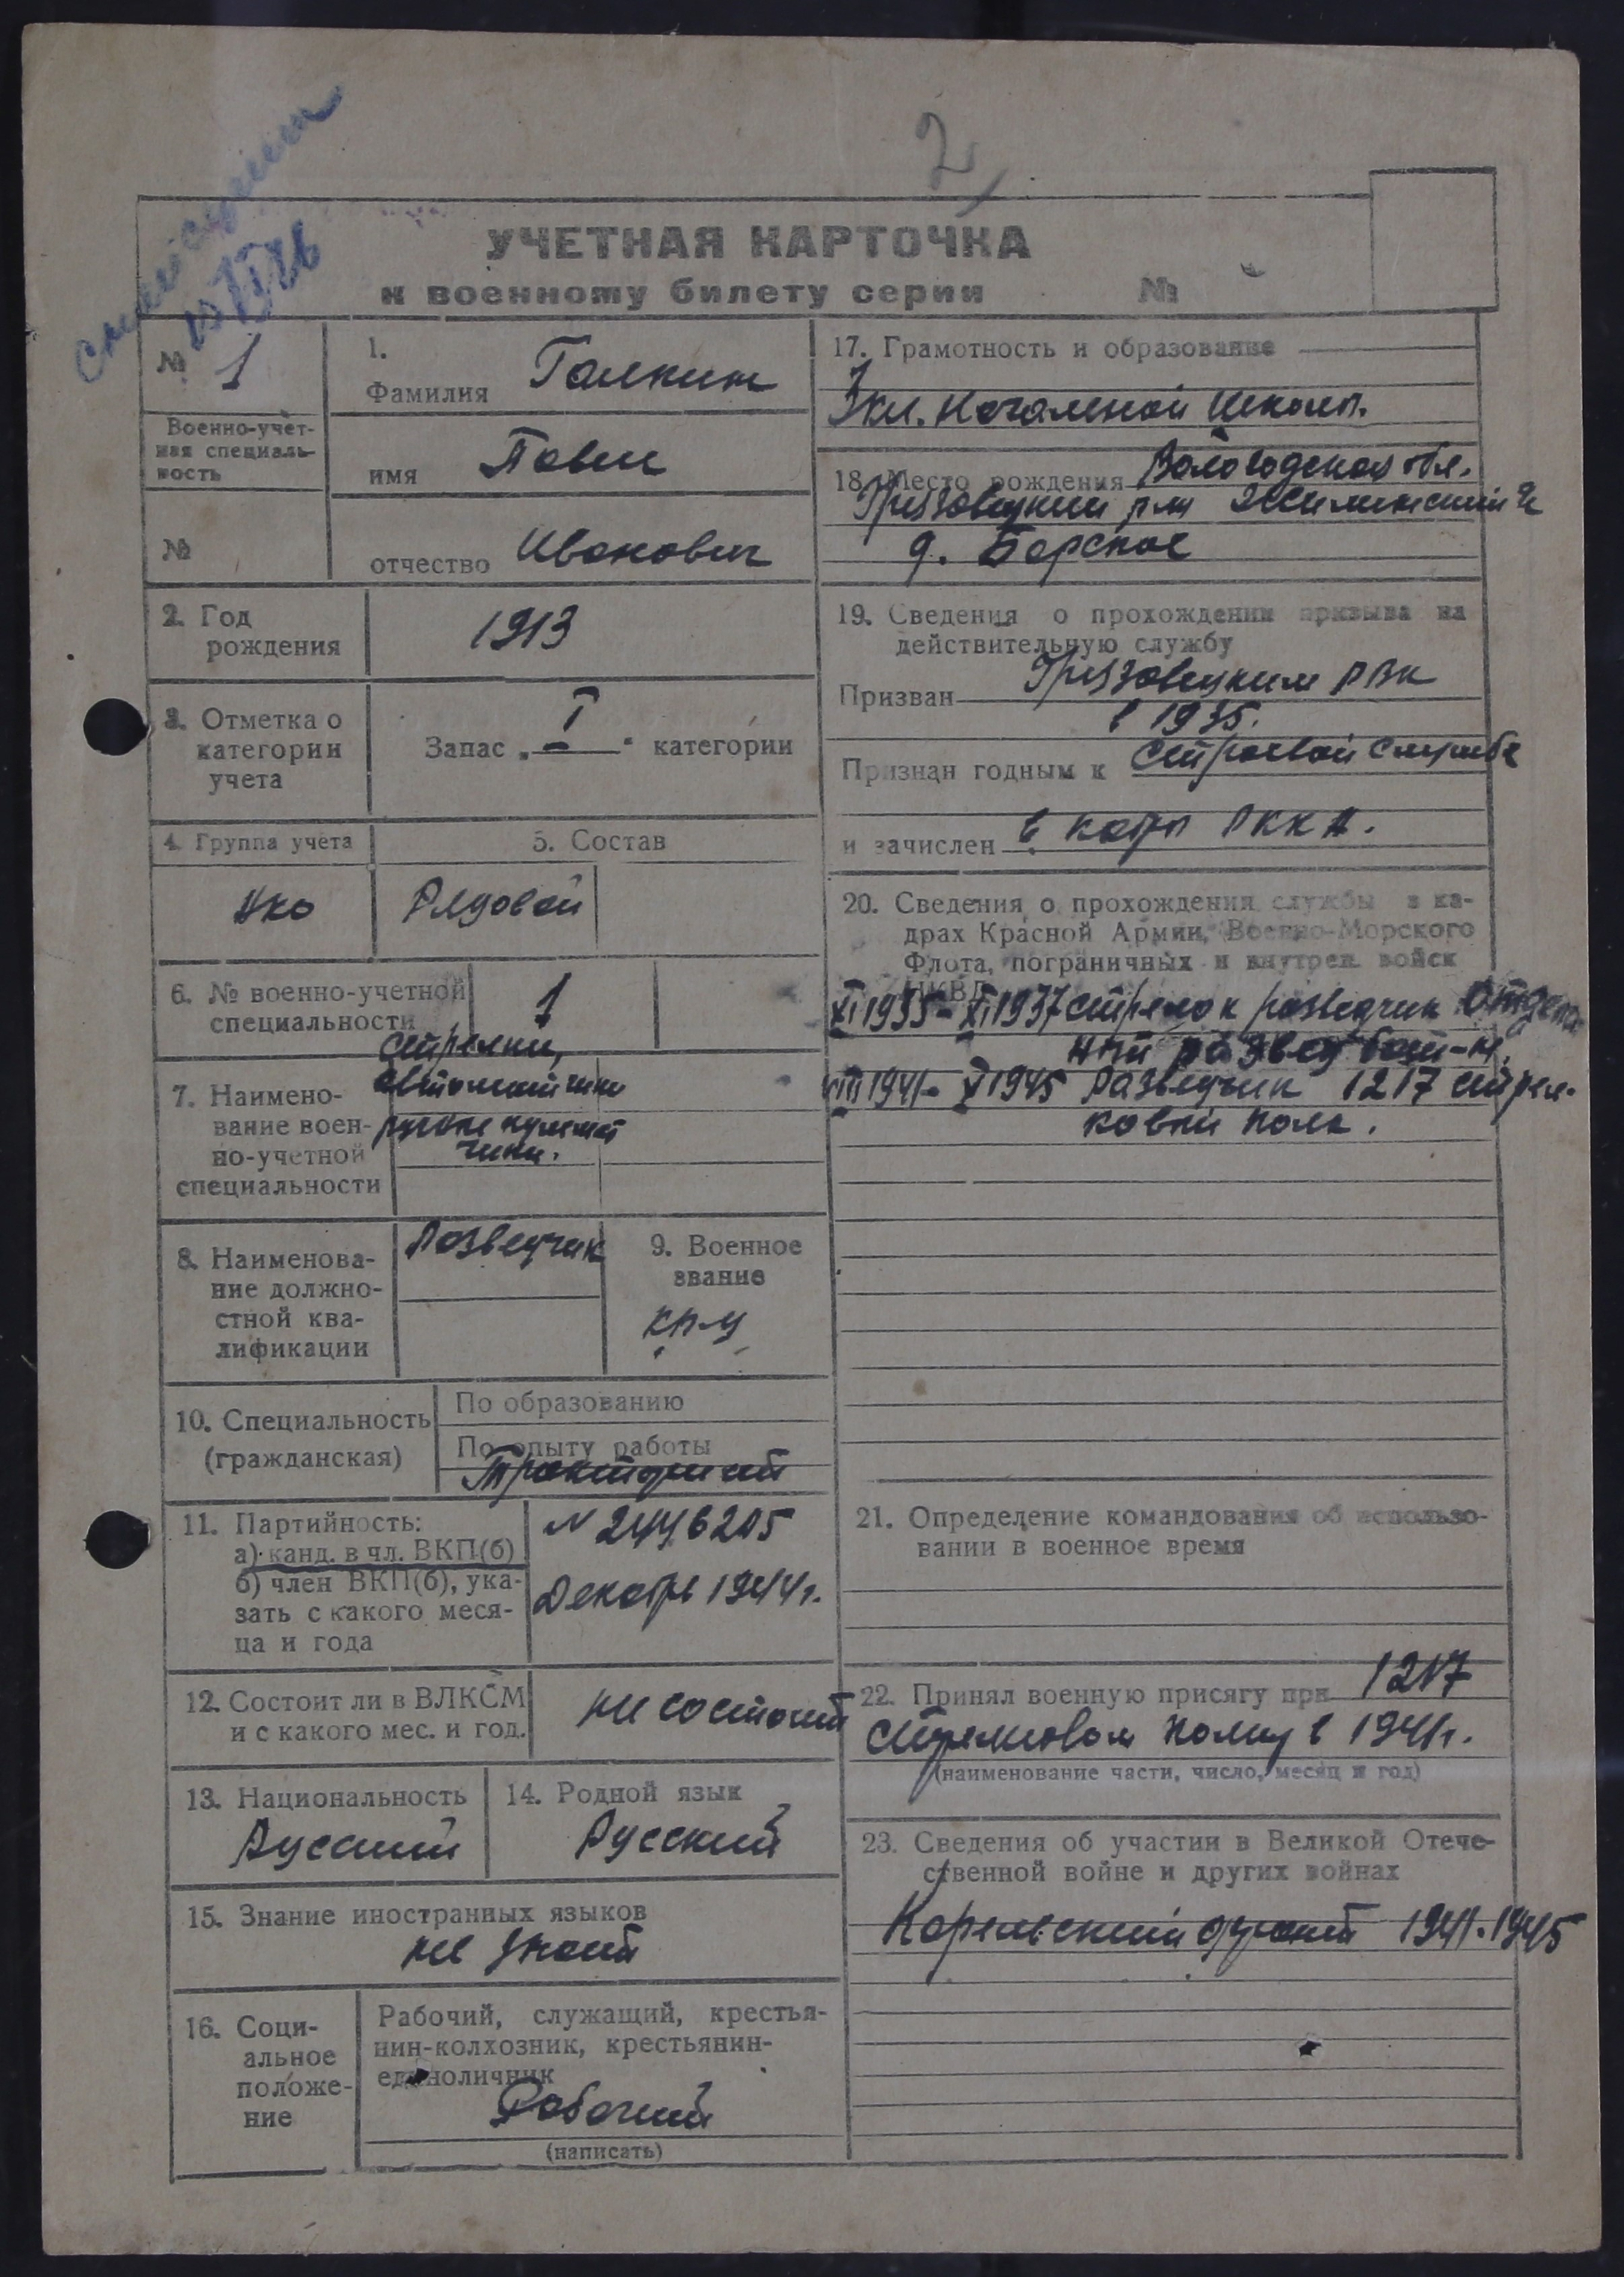 2
УЧЕТНАЯ КАРТОЧКА
к военному билету серии №
№ 1
Военно-учет-
ная специаль-
ность
№
1.
Фамилия Галкин
имя Павел
отчество Иванович
2. Год
рождения
1913
3. Отметка о
категории
учета
Запас „ I “ категории
4. Группа учета
5. Состав
Рядовой
6. № военно-учетной
специальности
1
7. Наимено-
вание воен-
но-учетной
специальности
Стрелки,
автоматчики
ручные пулемет
чики.
8. Наименова-
ние должно-
стной ква-
лификации
Разведчик
9. Военное
звание
кр-ц
10. Специальность
(гражданская)
По образованию
По опыту работы
Тракторист
11. Партийность:
а) канд. в чл. ВКП(б)
б) член ВКП(б), ука-
зать с какого меся-
ца и года
Декабрь 1944 г.
12. Состоит ли в ВЛКСМ
и с какого мес. и год.
не состоит
13. Национальность
Русский
14. Родной язык
Русский
15. Знание иностранных языков
не знает
16. Соци-
альное
положе-
ние
Рабочий, служащий, крестья-
нин-колхозник, крестьянин-
единоличник
Рабочий
(написать)
17. Грамотность и образование
3 кл. Начальной школы.
18. Место рождения Вологодская обл.
Грязовецкий р-н
д. Борское
19. Сведения о прохождении призыва на
действительную службу
Призван Грязовецким РВК
в 1935.
Признан годным к строевой службе
и зачислен в кадры РККА.
20. Сведения о прохождении службы в ка-
драх Красной Армии, Военно-Морского
Флота, пограничных и внутрен. войск
НКВД
XI 1935 - XI 1937 стрелок разведчик Отдель
ный развед бат-н.
VIII 1941 - V 1945 Разведчик 1217 стрел-
ковый полк.
21. Определение командования об использо-
вании в военное время
22. Принял военную присягу при 1217
стрелковом полку в 1941 г.
(наименование части, число, месяц и год)
23. Сведения об участии в Великой Отече-
ственной войне и других войнах
Карельский фронт 1941. 1945